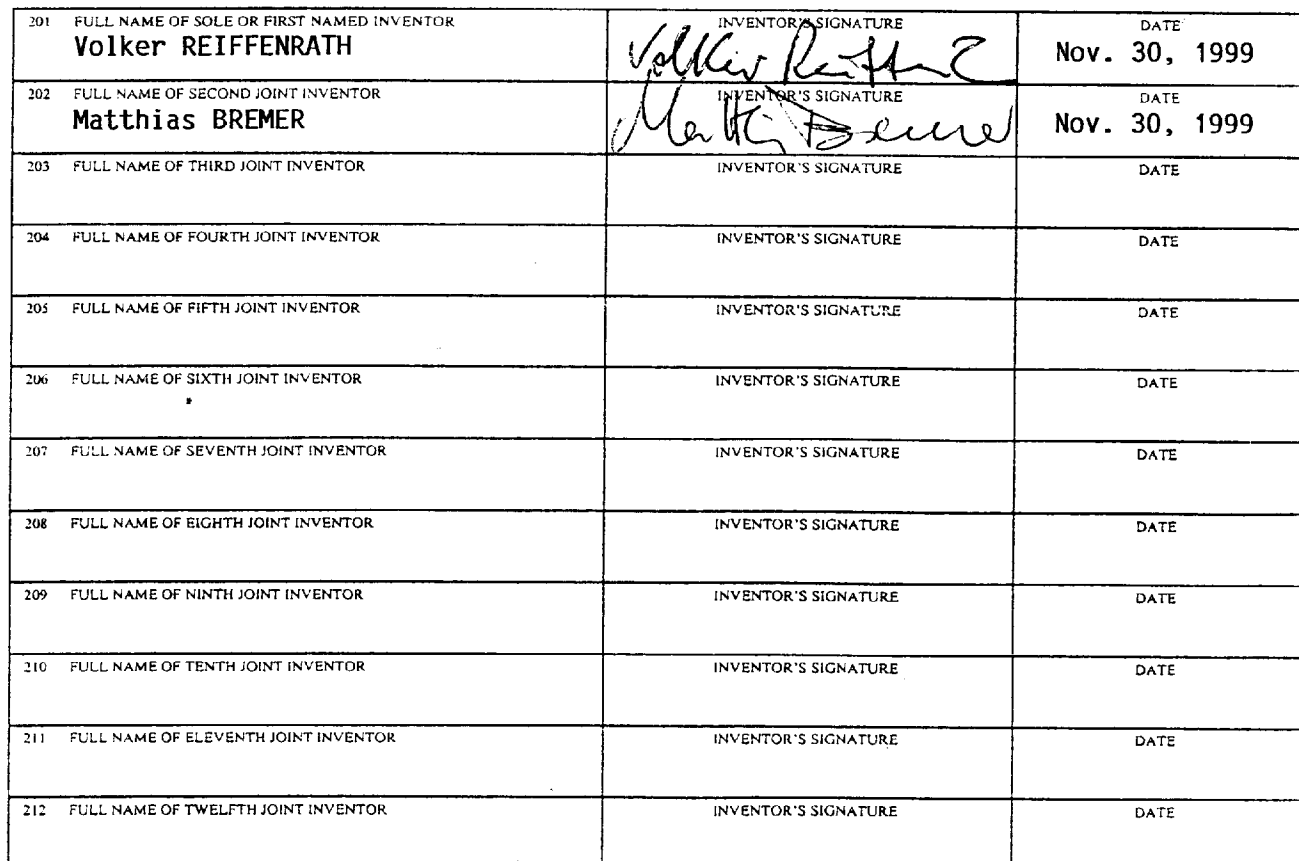 201 FULL NAME OF SOLE OR FIRST NAMED INVENTOR INVENTOR'S SIGNATURE DATE
Volker REIFFENRATH Volker Reiffenrath Nov. 30, 1999
202 FULL NAME OF SECOND JOINT INVENTOR INVENTOR'S SIGNATURE DATE
Matthias BREMER Matthias Bremer Nov. 30, 1999
203 FULL NAME OF THIRD JOINT INVENTOR INVENTOR'S SIGNATURE DATE
204 FULL NAME OF FOURTH JOINT INVENTOR INVENTOR'S SIGNATURE DATE
205 FULL NAME OF FIFTH JOINT INVENTOR INVENTOR'S SIGNATURE DATE
206 FULL NAME OF SIXTH JOINT INVENTOR INVENTOR'S SIGNATURE DATE
207 FULL NAME OF SEVENTH JOINT INVENTOR INVENTOR'S SIGNATURE DATE
208 FULL NAME OF EIGHTH JOINT INVENTOR INVENTOR'S SIGNATURE DATE
209 FULL NAME OF NINTH JOINT INVENTOR INVENTOR'S SIGNATURE DATE
210 FULL NAME OF TENTH JOINT INVENTOR INVENTOR'S SIGNATURE DATE
211 FULL NAME OF ELEVENTH JOINT INVENTOR INVENTOR'S SIGNATURE DATE
212 FULL NAME OF TWELFTH JOINT INVENTOR INVENTOR'S SIGNATURE DATE